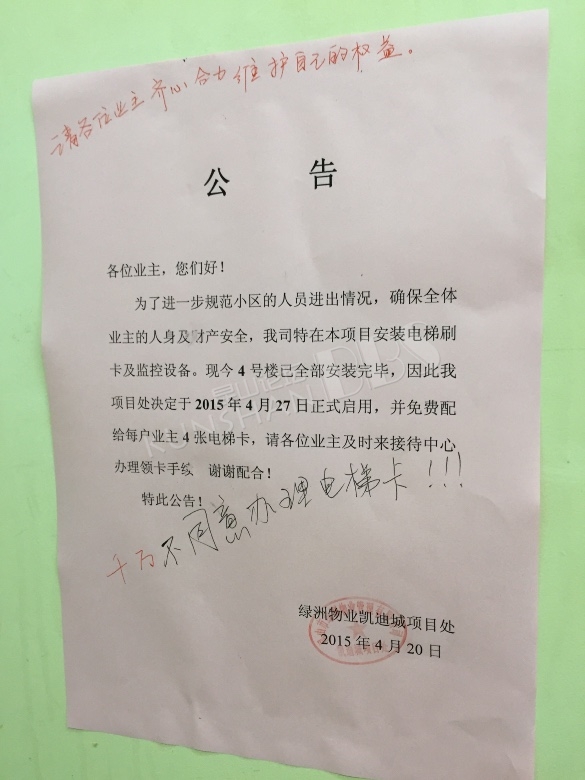 请各位业主齐心合力维护自己的权益。
公 告
各位业主，您们好！
为了进一步规范小区的人员进出情况，确保全体
业主的人身及财产安全，我司特在本项目安装电梯刷
卡及监控设备。现今 4 号楼已全部安装完毕，因此我
项目处决定于 2015 年 4 月 27 日正式启用，并免费配
给每户业主 4 张电梯卡，请各位业主及时来接待中心
办理领卡手续 谢谢配合！
特此公告！
千万不同意办理电梯卡!!!
绿洲物业凯迪城项目处
2015 年 4 月 20 日
KUNSHAN BBS